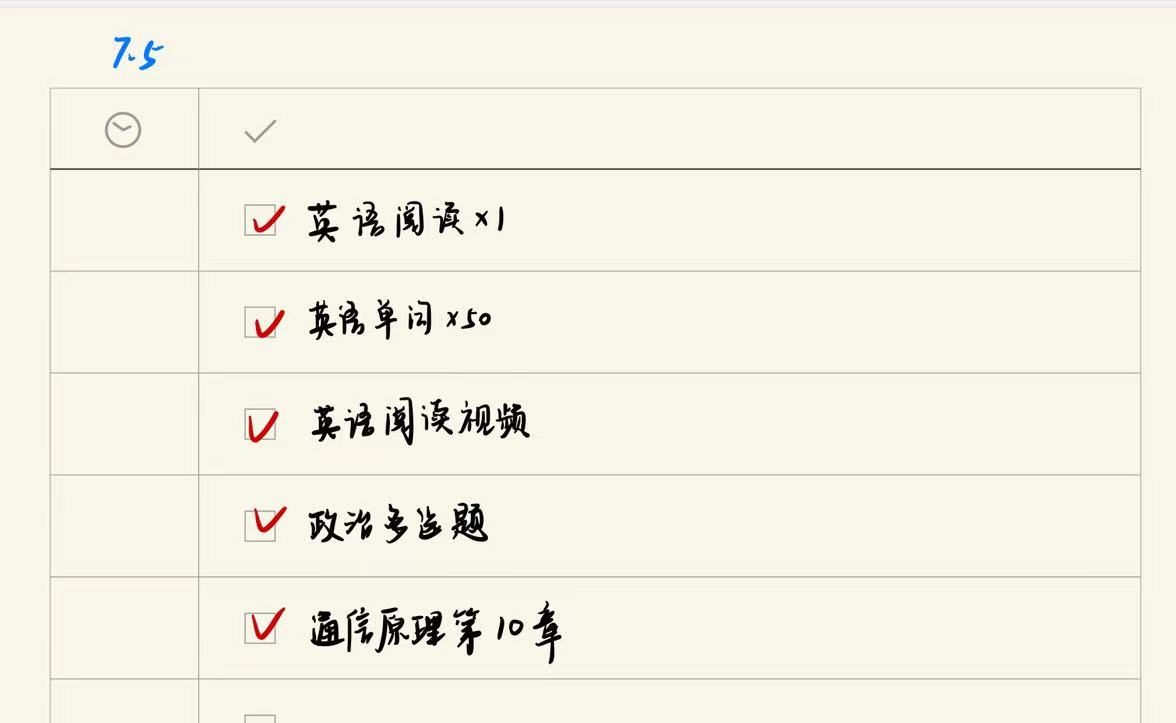 7.5
英语阅读×1
英语单词×50
英语阅读视频
政治多选题
通信原理第10章